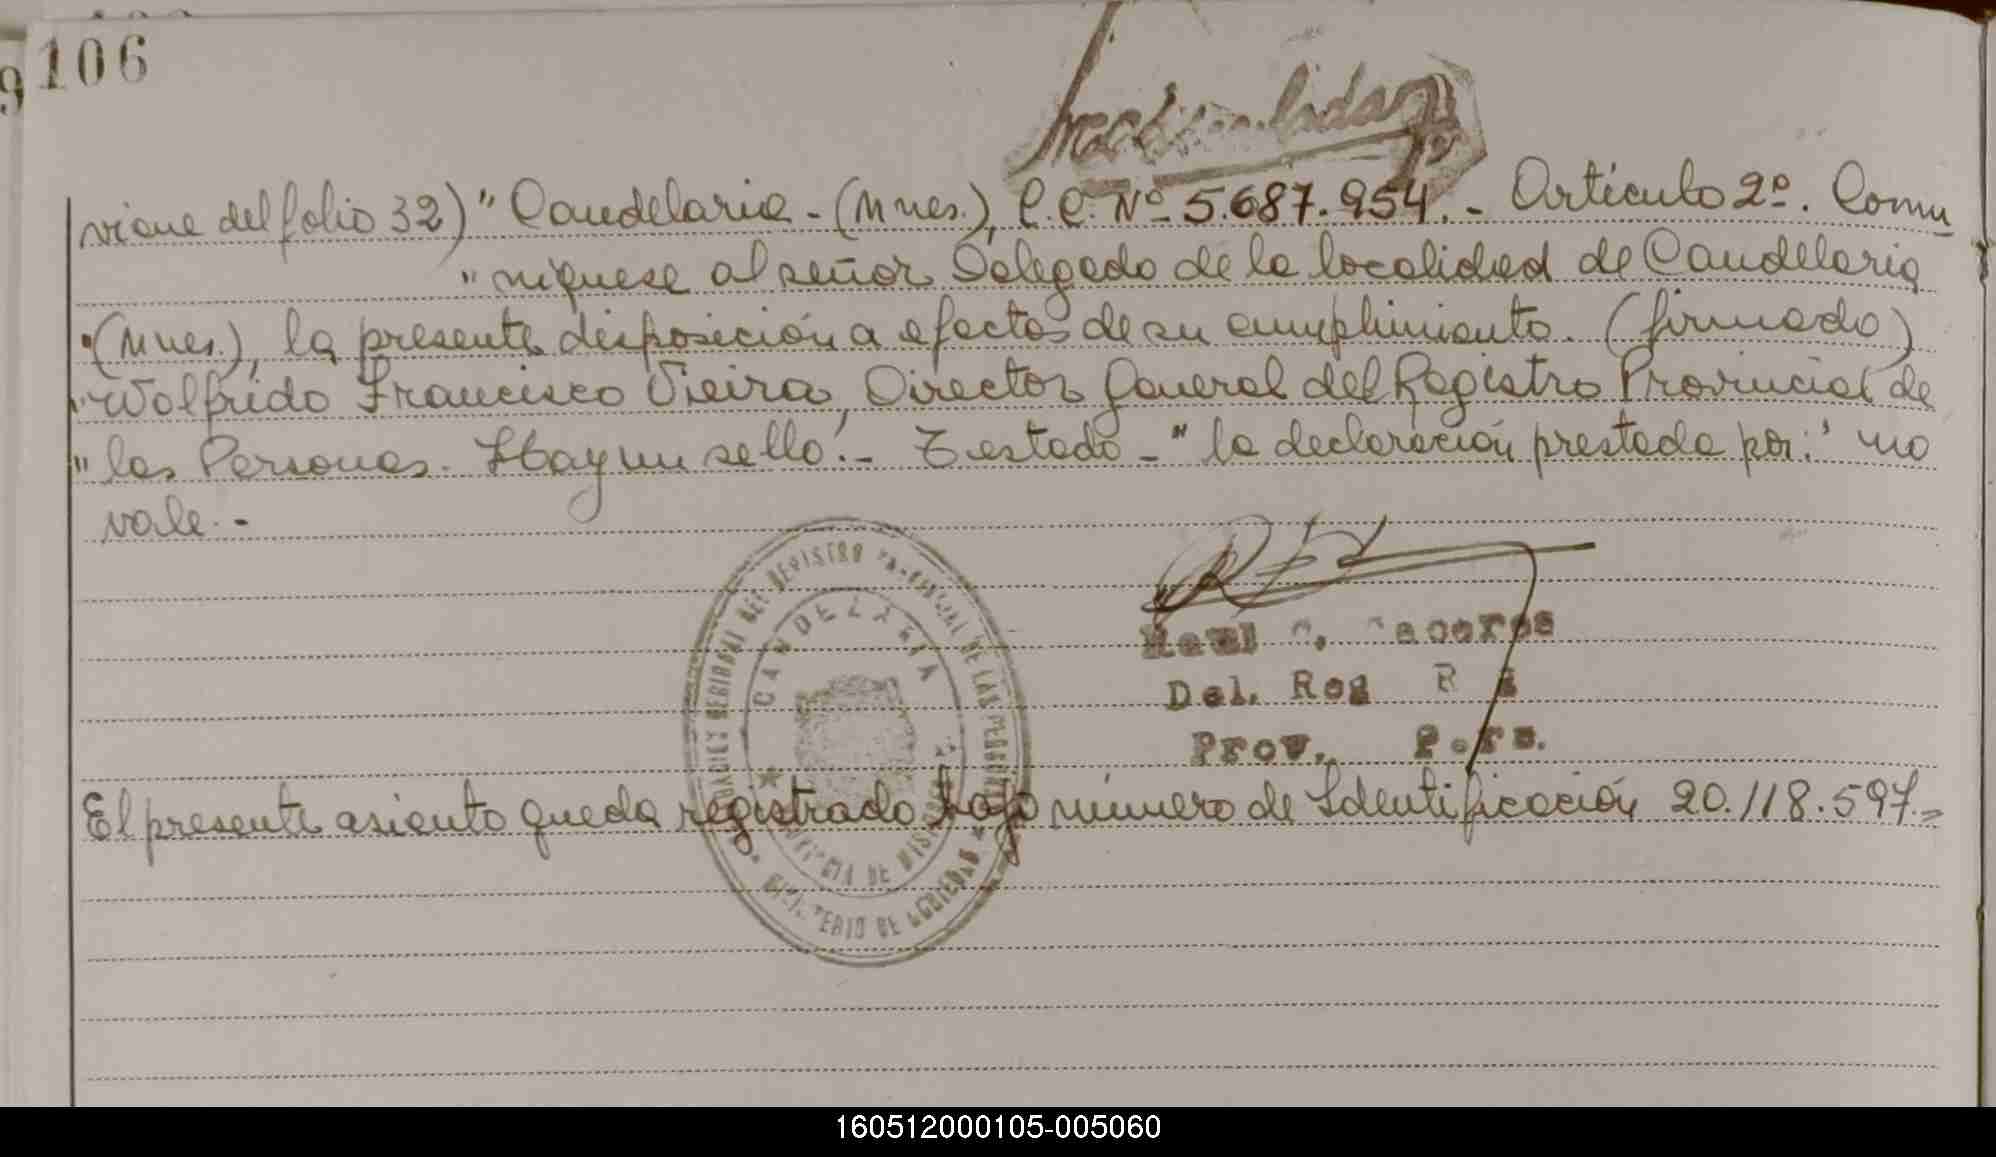 106
viene del folio 32) " Candelaria - (Mnes.), C.C. Nº 5.687.954. - Artículo 2º. Comu
" níquese al señor Delegado de la localidad de Candelaria
" (Mnes.), la presente disposición a efectos de su cumplimiento. (firmado)
" Wolfrido Francisco Vieira, Director General del Registro Provincial de
" las Personas. Hay un sello.- Testado - " la declaración prestada por: " no
vale. -
CANDELARIA
Raul
Del. Reg
Prov. Pers.
El presente asiento queda registrado bajo número de Identificación 20.118.597.=
MINISTERIO DE GOBIERNO
160512000105-005060